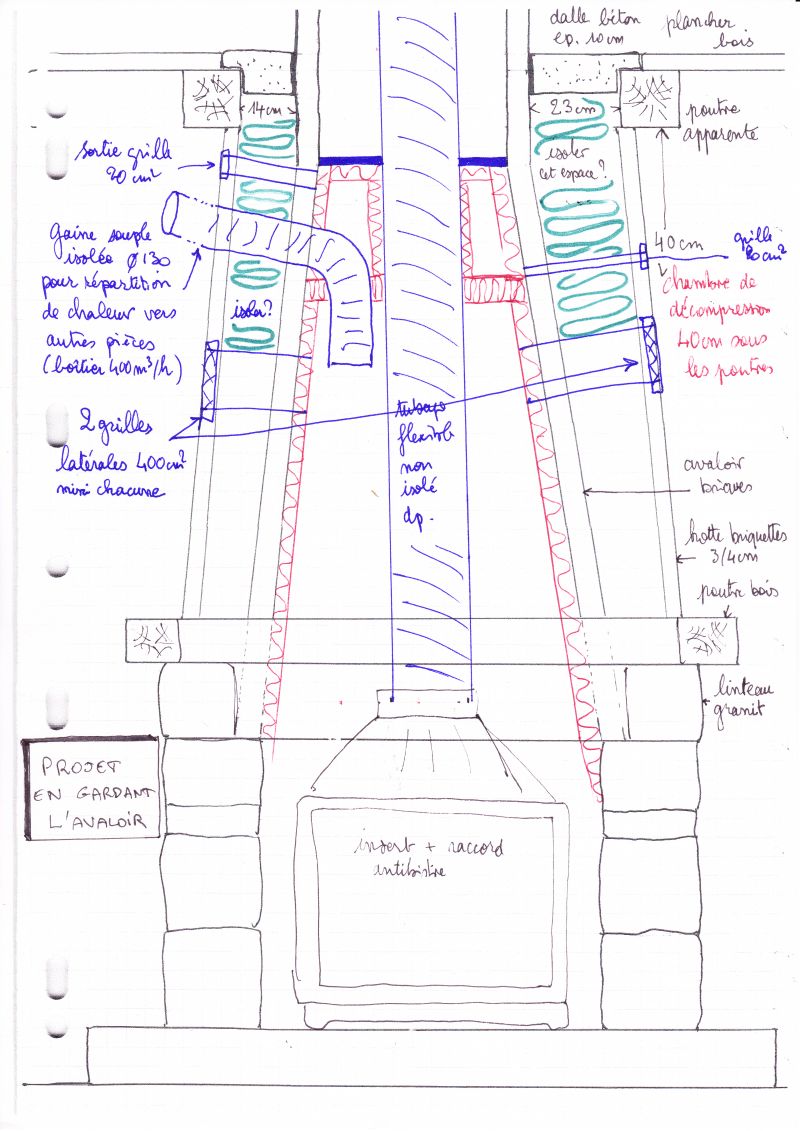 dalle béton
ep. 10cm
plancher
bois
14cm
23cm
poutre
apparente
isoler
cet espace?
sortie grille
20 cm²
Gaine souple
isolée Ø 130
pour répartition
de chaleur vers
autres pièces
(boîtier 400 m³/h)
isoler?
40cm
grille
20cm²
chambre de
décompression
40cm sous
les poutres
2 grilles
latérales 400cm²
mini chacune
tubage
flexible
non
isolé
dp.
avaloir
briques
hotte briquettes
3/4cm
poutre bois
linteau
granit
PROJET
EN GARDANT
L'AVALOIR
insert + raccord
antibistre